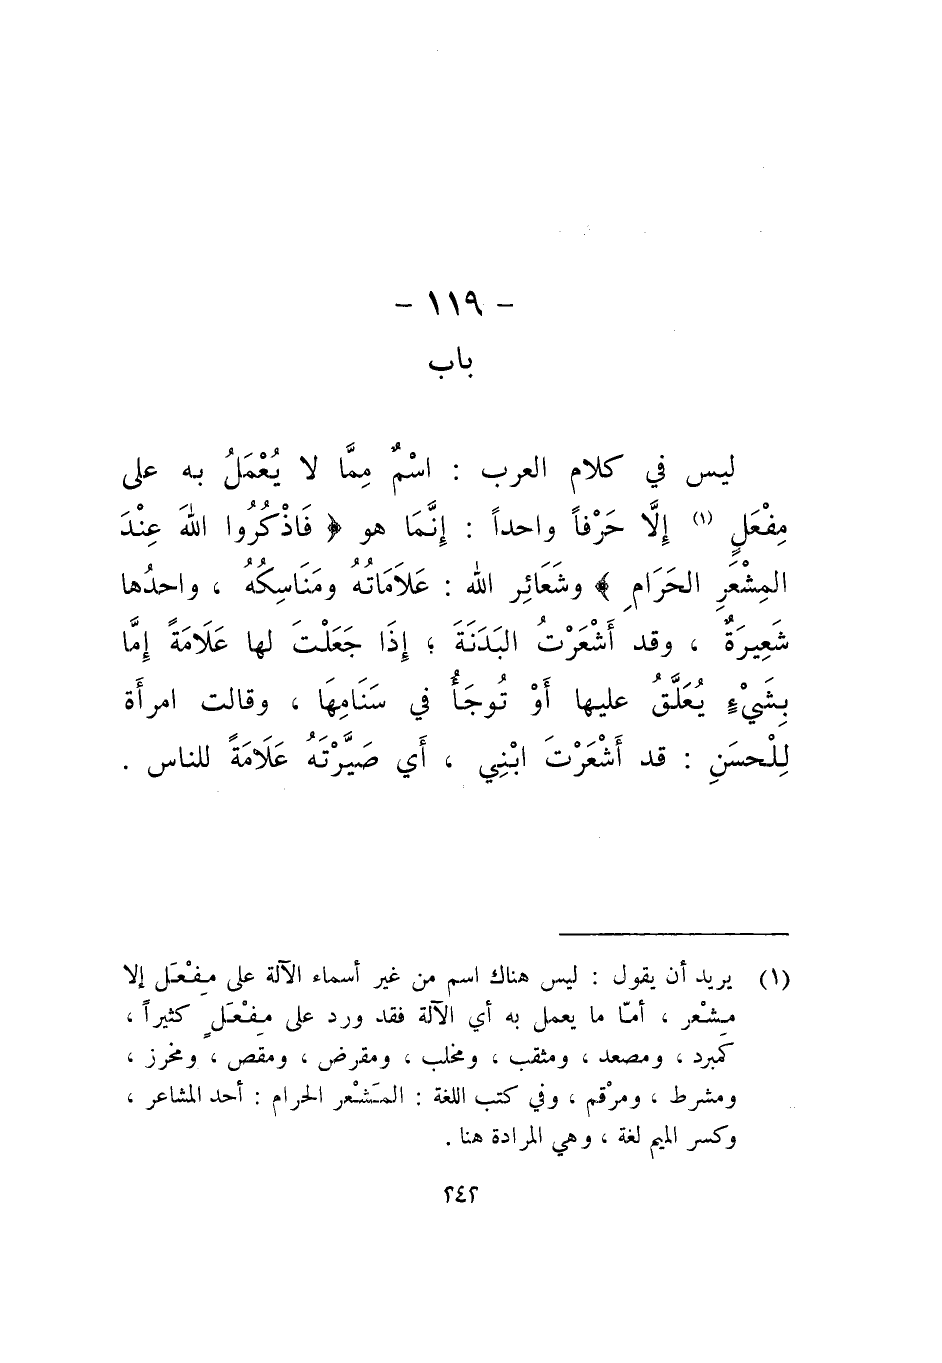 - ١١٩ -
باب
ليس في كلام العرب : اسْمٌ مِمَّا لا يُعْمَلُ به على
مِفْعَلٍ (١) إِلَّا حَرْفاً واحداً : إِنَّمَا هو ﴿ فَاذْكُرُوا اللهَ عِنْدَ
المِشْعَرِ الحَرَامِ ﴾ وشَعَائِر الله : عَلاَمَاتُهُ ومَنَاسِكُهُ ، واحدُها
شَعِيرَةٌ ، وقد أَشْعَرْتُ البَدَنَةَ ؛ إِذَا جَعَلْتَ لها عَلَامَةً إِمَّا
بِشَيْءٍ يُعَلَّقُ عليها أَوْ تُوجَأُ في سَنَامِهَا ، وقالت امرأَة
لِلْحسَنِ : قد أَشْعَرْتَ ابْنِي ، أَي صَيَّرْتَهُ عَلَامَةً للناس .
(١) يريد أن يقول : ليس هناك اسم من غير أسماء الآلة على مِفْعَل إلا
مِشْعر ، أمّا ما يعمل به أي الآلة فقد ورد على مِفْعَلٍ كثيراً ،
كمبرد ، ومصعد ، ومثقب ، ومخلب ، ومقرض ، ومقص ، ومخرز ،
ومشرط ، ومرْقم ، وفي كتب اللغة : المَشْعر الحرام : أحد المشاعر ،
وكسر الميم لغة ، وهي المرادة هنا .
٢٤٢